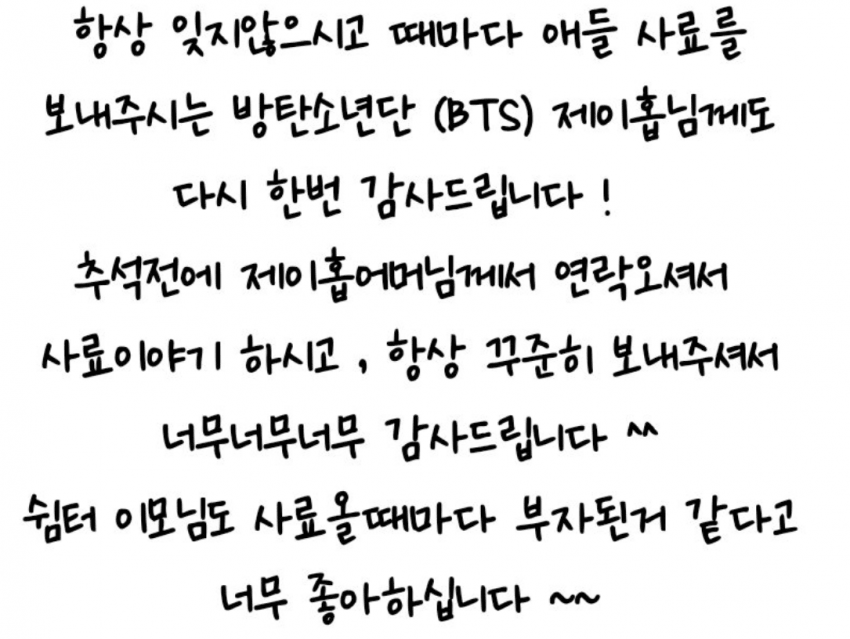 항상 잊지않으시고 때마다 애들 사료를
보내주시는 방탄소년단 (BTS) 제이홉님께도
다시 한번 감사드립니다 !
추석전에 제이홉어머님께서 연락오셔서
사료이야기 하시고 , 항상 꾸준히 보내주셔서
너무너무너무 감사드립니다 ^^
쉼터 이모님도 사료올때마다 부자된거 같다고
너무 좋아하십니다 ~~